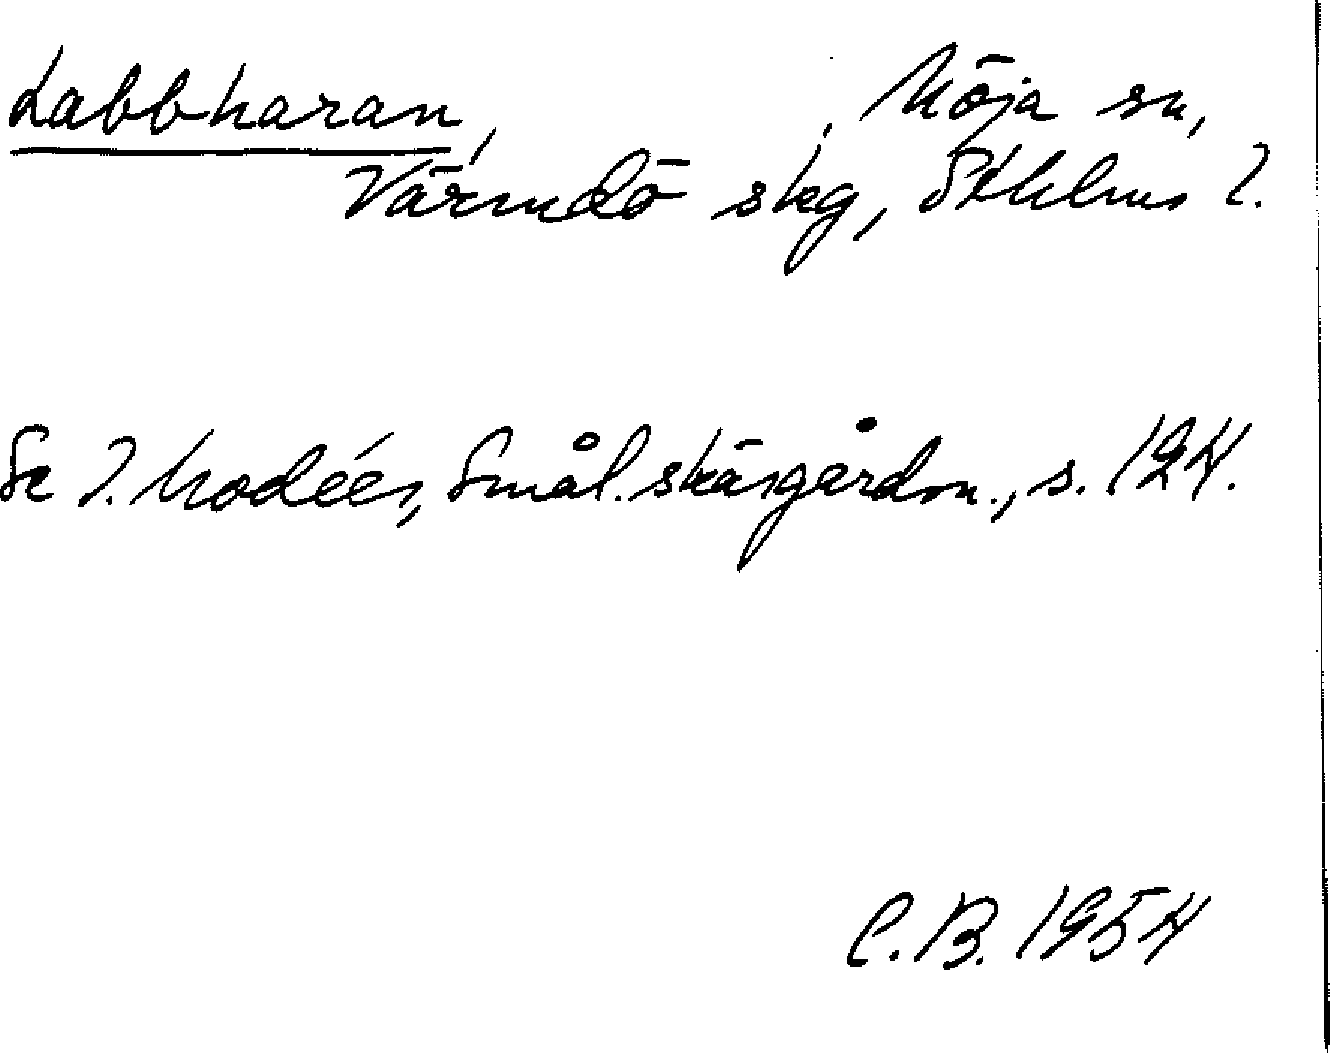 Labbharan, , Möja sn,
Värmdö skg, Sthlms l.
Se I. Modéer, Smål. skärgårdsn., s. 124.
C.B. 1954